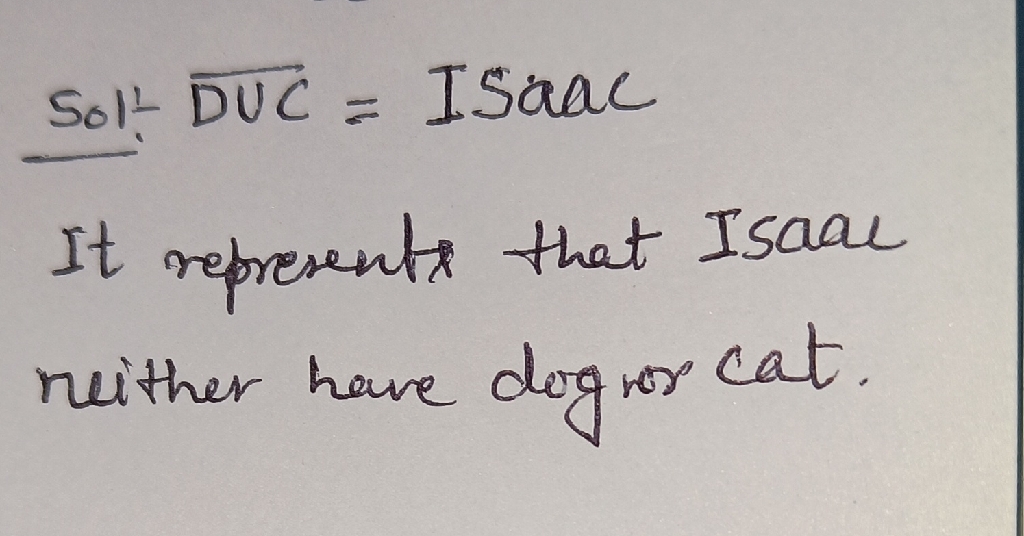 Sol:- \overline{DUC} = Isaac
It represents that Isaac
neither have dog nor cat.